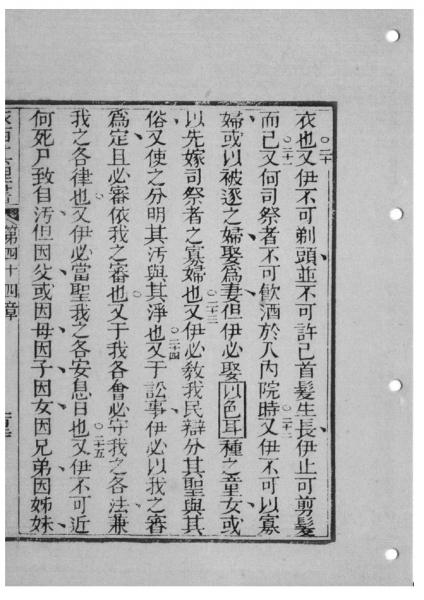 衣也○二十又伊不可剃頭並不可許己首髮生長伊止可剪髮
而已○二十一又何司祭者不可飲酒於入內院時○二十二又伊不可以寡
婦或以被逐之婦娶爲妻但伊必娶以色耳種之童女或
以先嫁司祭者之寡婦也○二十三又伊必敎我民辯分其聖與其
俗又使之分明其汚與其淨也○二十四又于訟事伊必以我之審
爲定且必審依我之審也又于我各會必守我之各法兼
我之各律也又伊必當聖我之各安息日也○二十五又伊不可近
何死尸致自汚但因父或因母因子因女因兄弟因姊妹
第四十四章